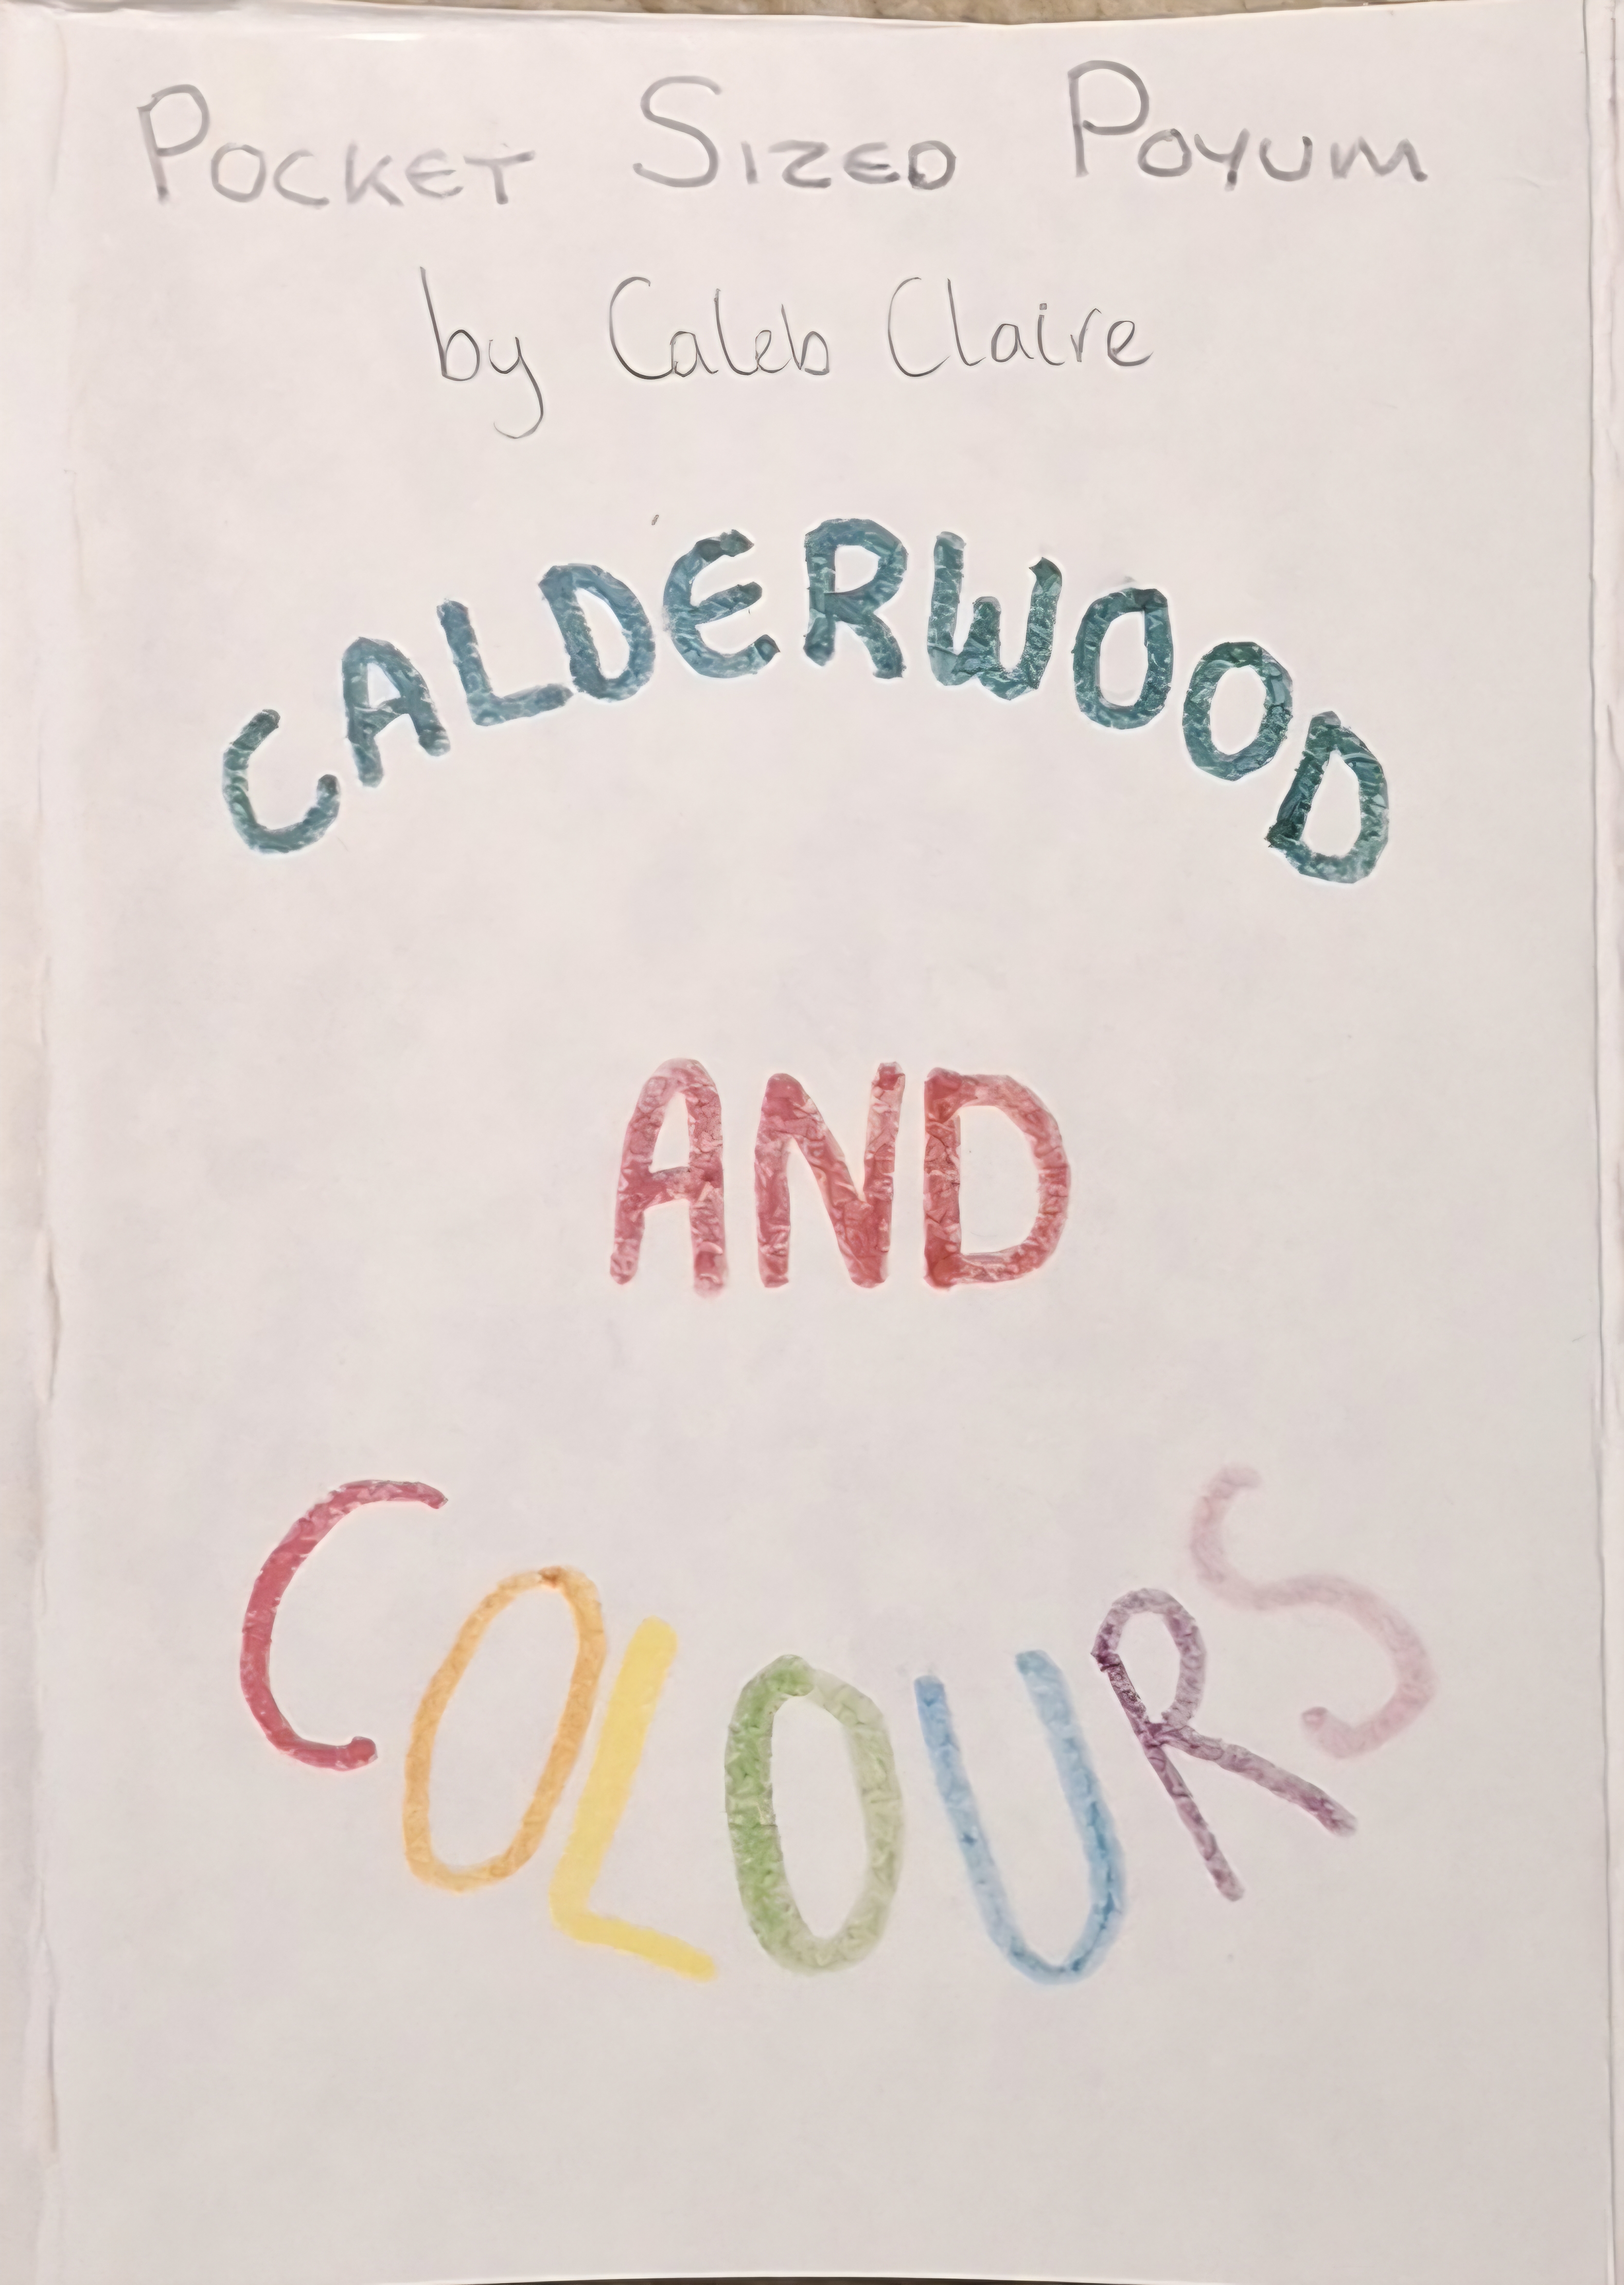 POCKET SIZED POYUM
by Caleb Claire
CALDERWOOD
AND
COLOURS